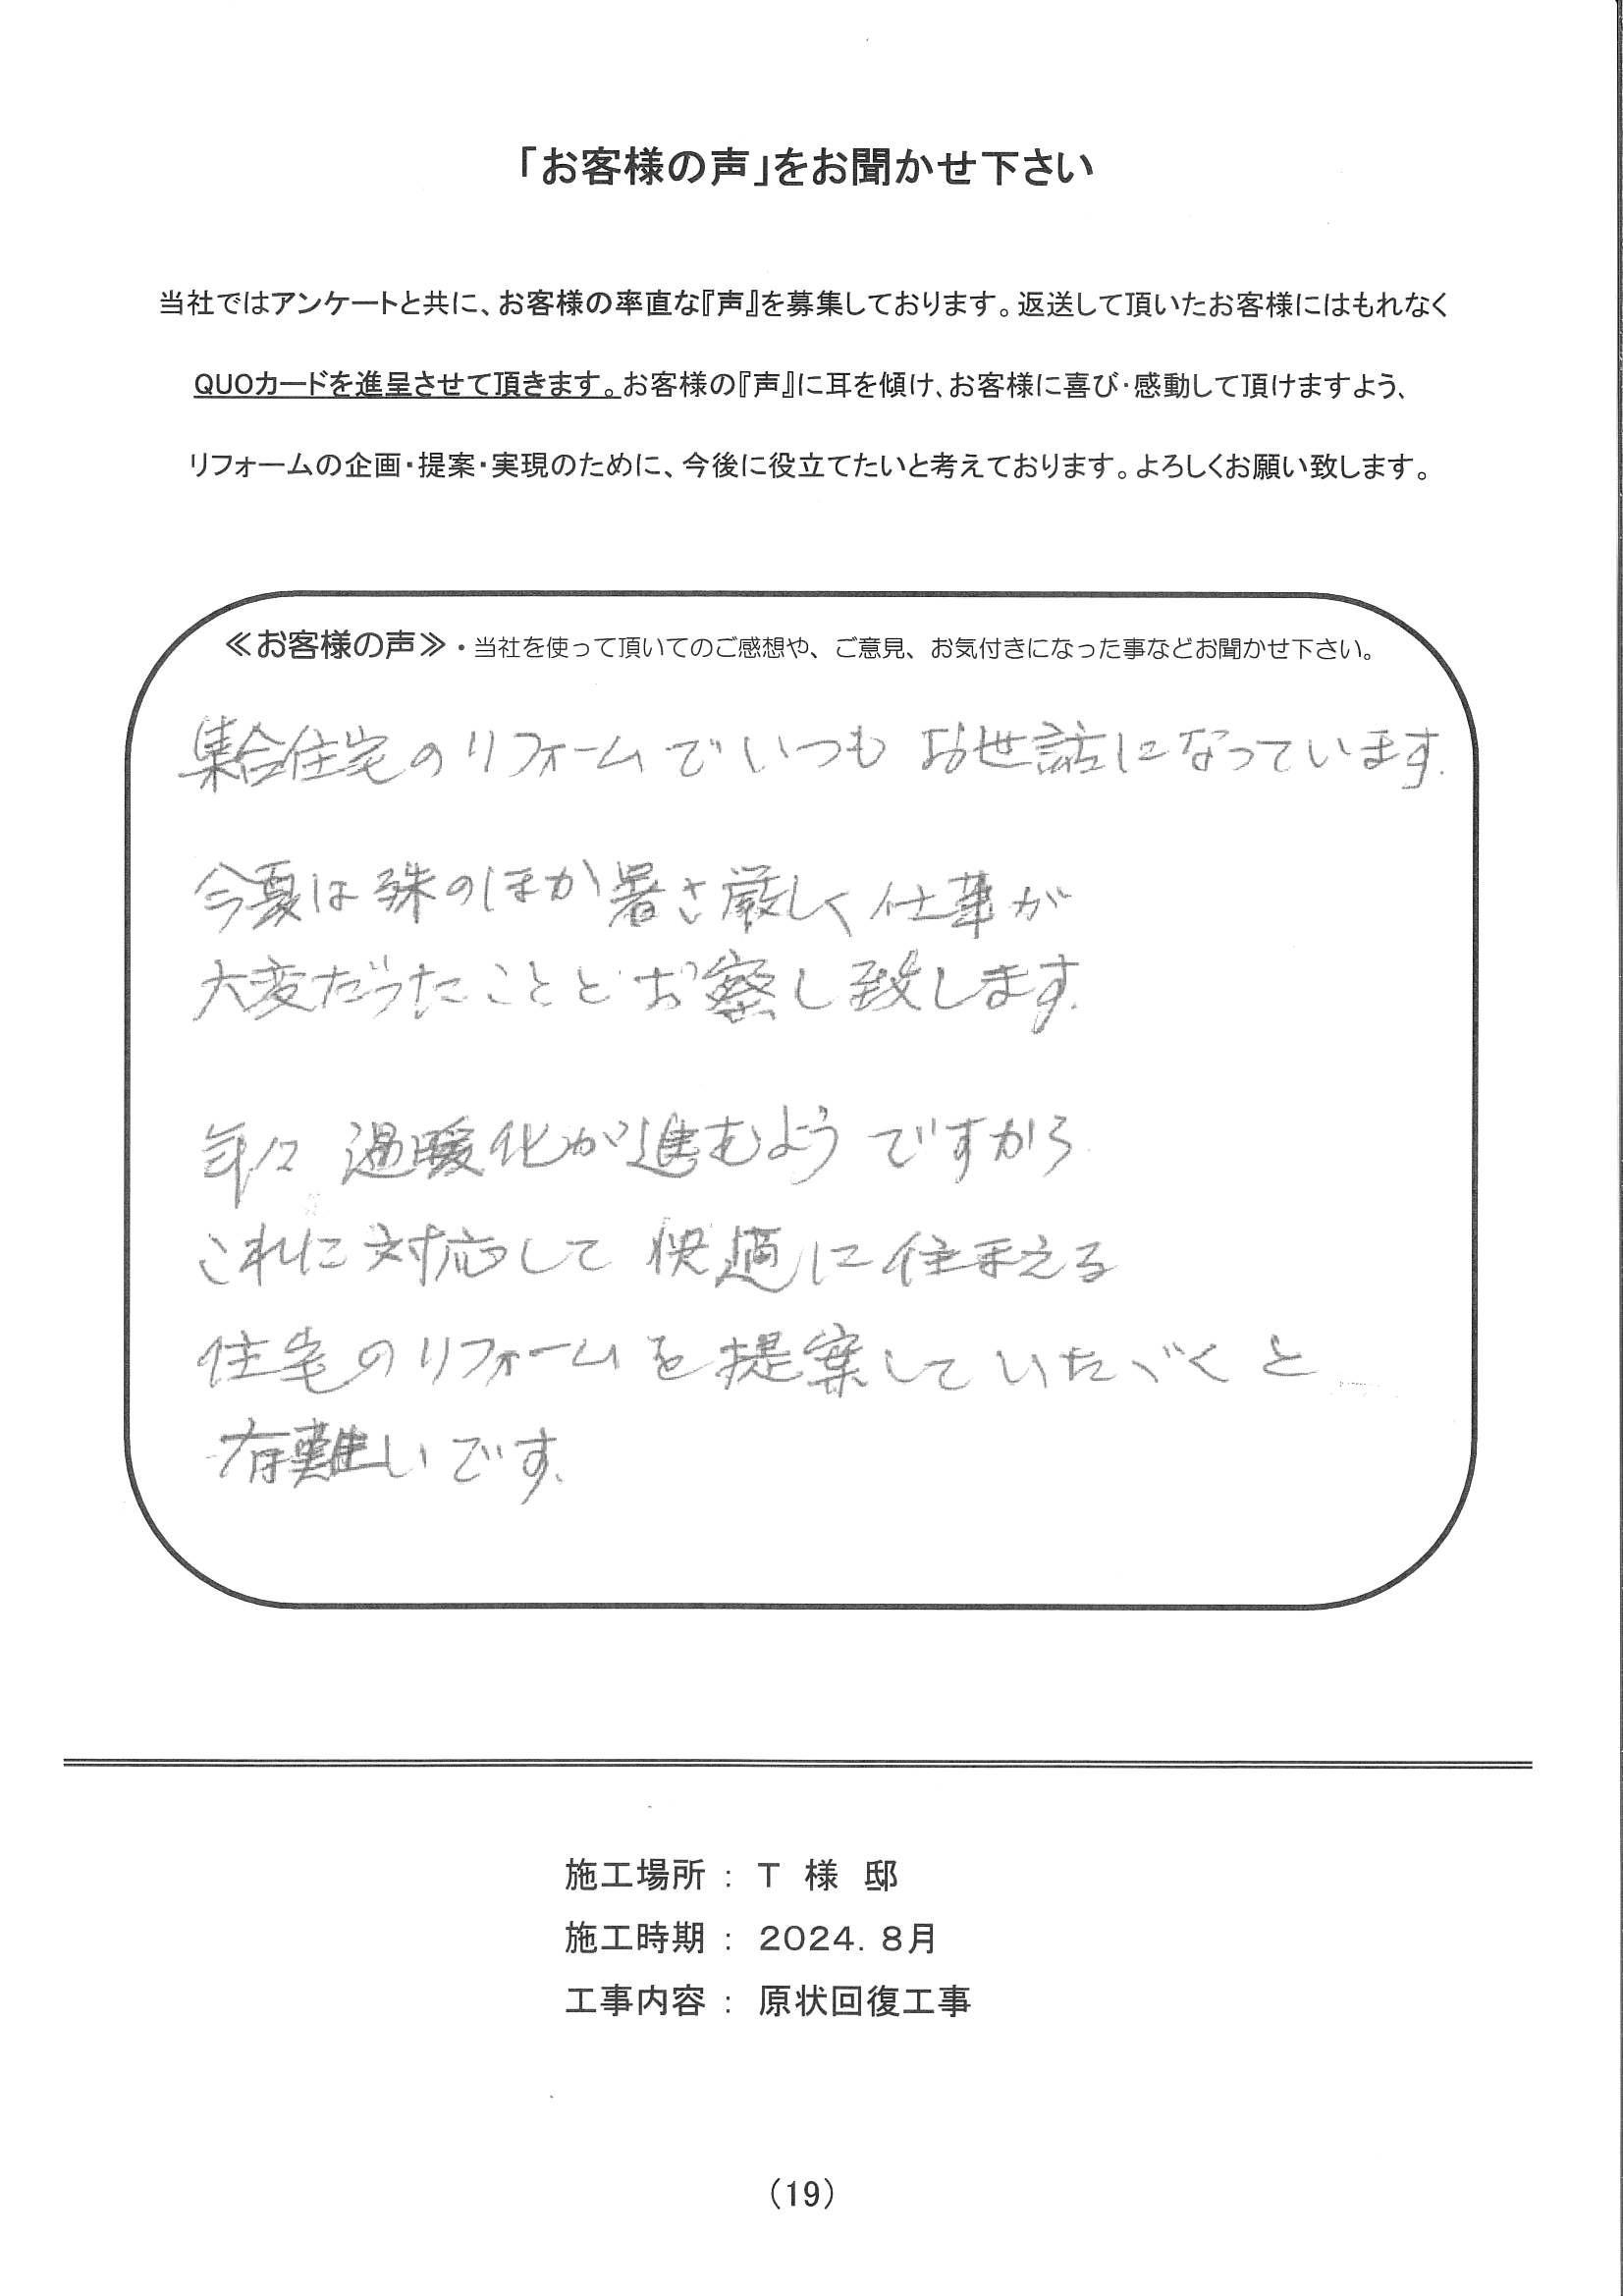 「お客様の声」をお聞かせ下さい
当社ではアンケートと共に、お客様の率直な『声』を募集しております。返送して頂いたお客様にはもれなく
QUOカードを進呈させて頂きます。お客様の『声』に耳を傾け、お客様に喜び・感動して頂けますよう、
リフォームの企画・提案・実現のために、今後に役立てたいと考えております。よろしくお願い致します。
≪お客様の声≫・当社を使って頂いてのご感想や、ご意見、お気付きになった事などお聞かせ下さい。
集合住宅のリフォームでいつもお世話になっています.
今夏は殊のほか暑さ厳しく仕事が
大変だったこととお察し致します.
年々 温暖化が進むようですから
これに対応して 快適に住まえる
住宅のリフォームを提案していただくと
有難いです.
施工場所 : T 様 邸
施工時期 : 2024. 8月
工事内容 : 原状回復工事
(19)